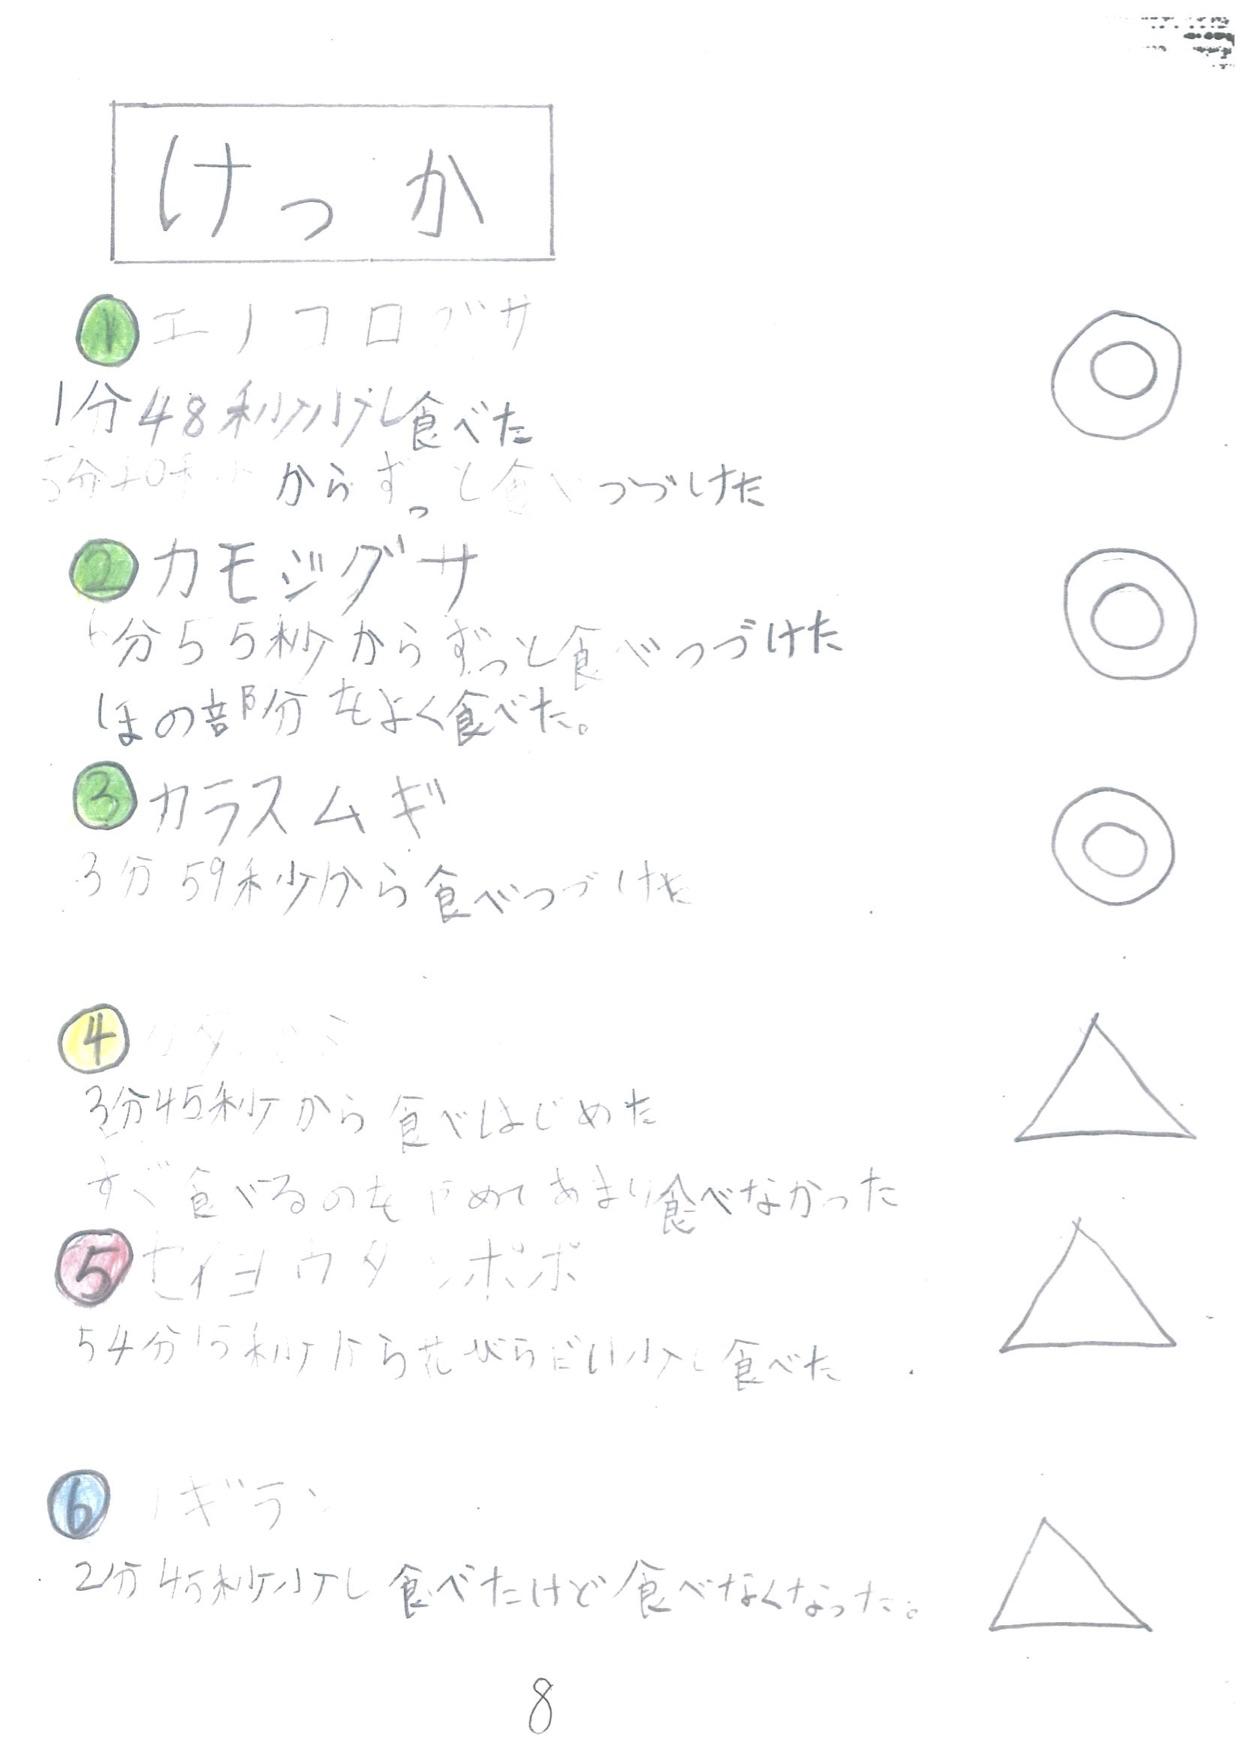 けっか
① エノコログサ
1分48秒少し食べた
からずっと食べつづけた
② カモジグサ
分55秒からずっと食べつづけた
ほの部分をよく食べた。
③ カラスムギ
3分59秒から食べつづけた
④
3分45秒から食べはじめた
すぐ食べるのをやめてあまり食べなかった
⑤ セイヨウタンポポ
54分15秒から花びらだい少し食べた
⑥ ノギラン
2分45秒少し食べたけど食べなくなった。
8